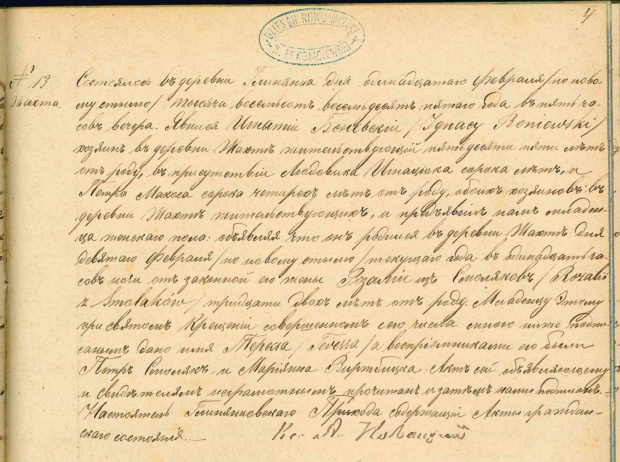 4
DZIEKAN NOWO-
№ 13
Жакта
Состоялось въ деревни Глинянка дня одинадцатаго Февраля /по ново
му стилю/ тысяча восемьсотъ восемьдесятъ пятаго года въ пять ча
совъ вечера. Явился Игнатій Боневскій /Ignacy Boniewski/
хозяинъ въ деревни Жактъ жительствующій пятьдесяти пяти лѣтъ
отъ роду, въ присутствіи Людовика сорока лѣтъ, и
Петра Макоса сорока четырехъ лѣтъ отъ роду, обоихъ хозяиновъ въ
деревни Жактъ жительствующихъ, и предъявилъ намъ младен
ца женскаго пола: объявляя что онъ родился въ деревни Жактъ дня
девятаго Февраля /по новому стилю/ текущаго года въ одинадцать ча
совъ ночи отъ законной его жены Розаліи изъ Смоляковъ /Rozalii
z Smolaków/ тридцати двохъ лѣтъ отъ роду. Младенцу этому
при святомъ Крещеніи совершенномъ сего числа нами ниже подпи
саннымъ дано имя Тереса /Teressa/ а воспріемниками его были
Петръ Смолякъ и Маріянна. Актъ сей объявляющему
и свидѣтелямъ неграмотнымъ прочитанъ и затѣмъ нами подписанъ.
Настоятель Глинянковскаго Прихода содержащій Акты граждан-
скаго состоянія. Кс. А.